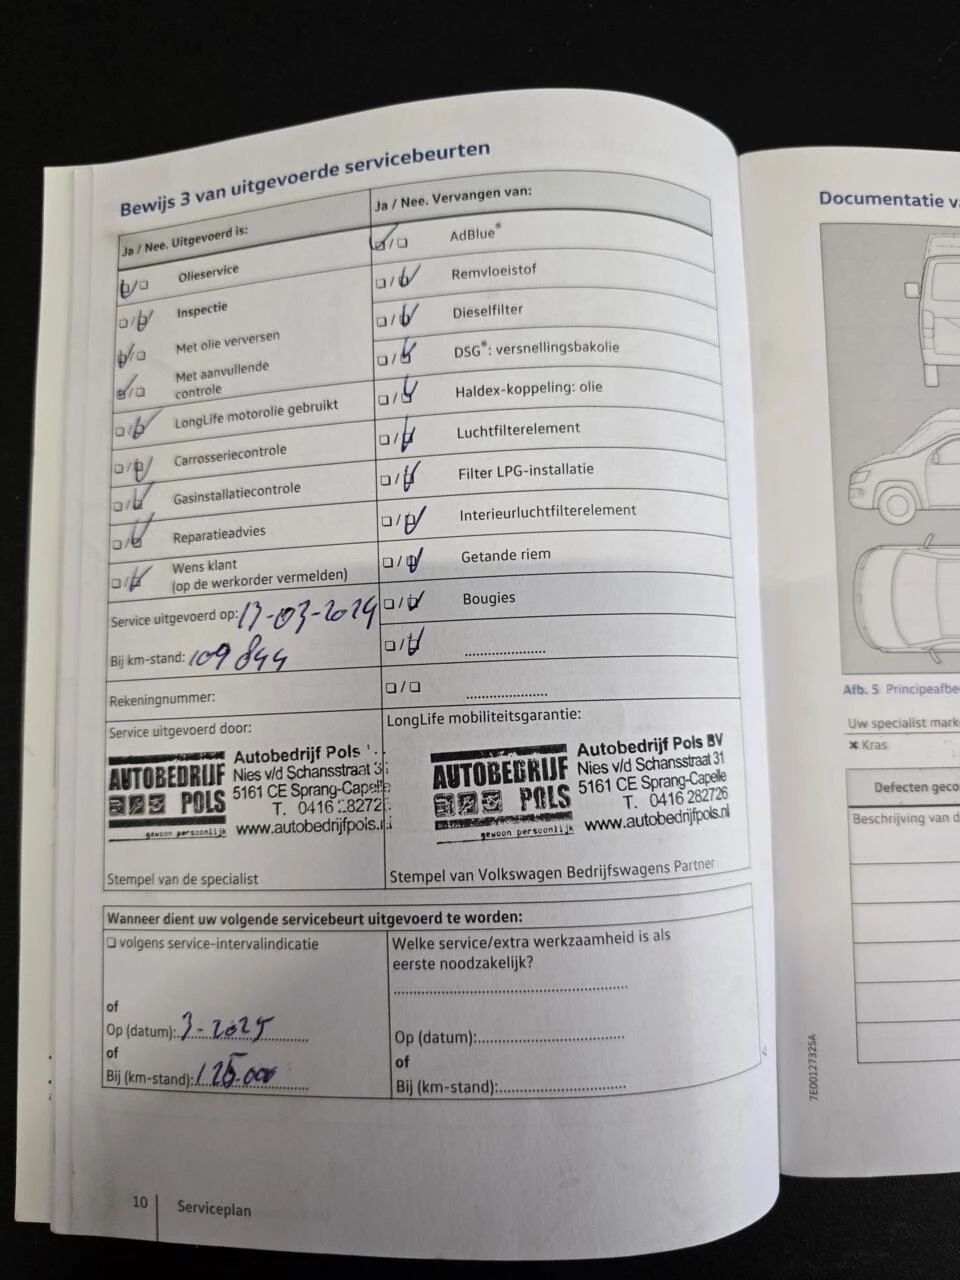 Bewijs 3 van uitgevoerde servicebeurten
Ja / Nee. Uitgevoerd is:
Olieservice
Inspectie
Met olie verversen
Met aanvullende
controle
LongLife motorolie gebruikt
Carrosseriecontrole
Gasinstallatiecontrole
Reparatieadvies
Wens klant
(op de werkorder vermelden)
Service uitgevoerd op: 13-03-2024
Bij km-stand: 109 844
Rekeningnummer:
Service uitgevoerd door:
AUTOBEDRIJF
POLS
gewoon persoonlijk
Autobedrijf Pols
Nies v/d Schansstraat 31
5161 CE Sprang-Capelle
T. 0416 282726
www.autobedrijfpols.nl
Stempel van de specialist
Ja / Nee. Vervangen van:
AdBlue®
Remvloeistof
Dieselfilter
DSG®: versnellingsbakolie
Haldex-koppeling: olie
Luchtfilterelement
Filter LPG-installatie
Interieurluchtfilterelement
Getande riem
Bougies
LongLife mobiliteitsgarantie:
AUTOBEDRIJF
POLS
gewoon persoonlijk
Autobedrijf Pols BV
Nies v/d Schansstraat 31
5161 CE Sprang-Capelle
T. 0416 282726
www.autobedrijfpols.nl
Stempel van Volkswagen Bedrijfswagens Partner
Wanneer dient uw volgende servicebeurt uitgevoerd te worden:
volgens service-intervalindicatie
of
Op (datum): 3-2025
of
Bij (km-stand): 125.000
Welke service/extra werkzaamheid is als
eerste noodzakelijk?
Op (datum):
of
Bij (km-stand):
10 Serviceplan
Documentatie va
Afb. 5 Principeafbe
Uw specialist mark
Kras
Defecten geco
Beschrijving van d
7E0012732SA